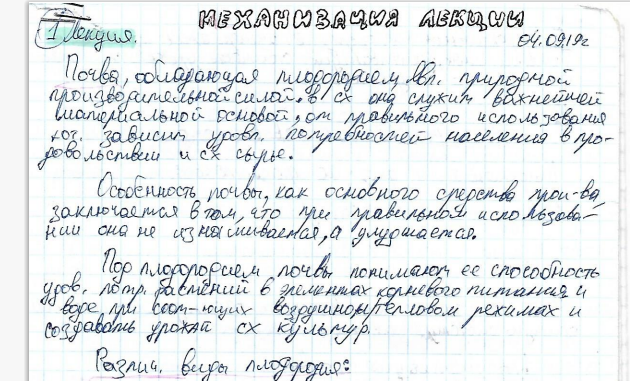 МЕХАНИЗАЦИЯ ЛЕКЦИИ
1 Лекция.
04.09.19г
Почва, обладающая плодородием, явл. природной
производительной силой. в сх она служит важнейшей
материальной основой, от правильного использования
кот. зависит удовл. потребностей населения в про-
довольствии и сх сырье.
Особенность почвы, как основного средства прои-ва,
заключается в том, что при правильном использова-
нии она не изнашивается, а улучшается.
Под плодородием почвы понимают ее способность
удов. потр. растений в элементах корневого питания и
воде при соот-ющих воздушном, тепловом режимах и
создавать урожай сх культур.
Различ. виды плодородия: